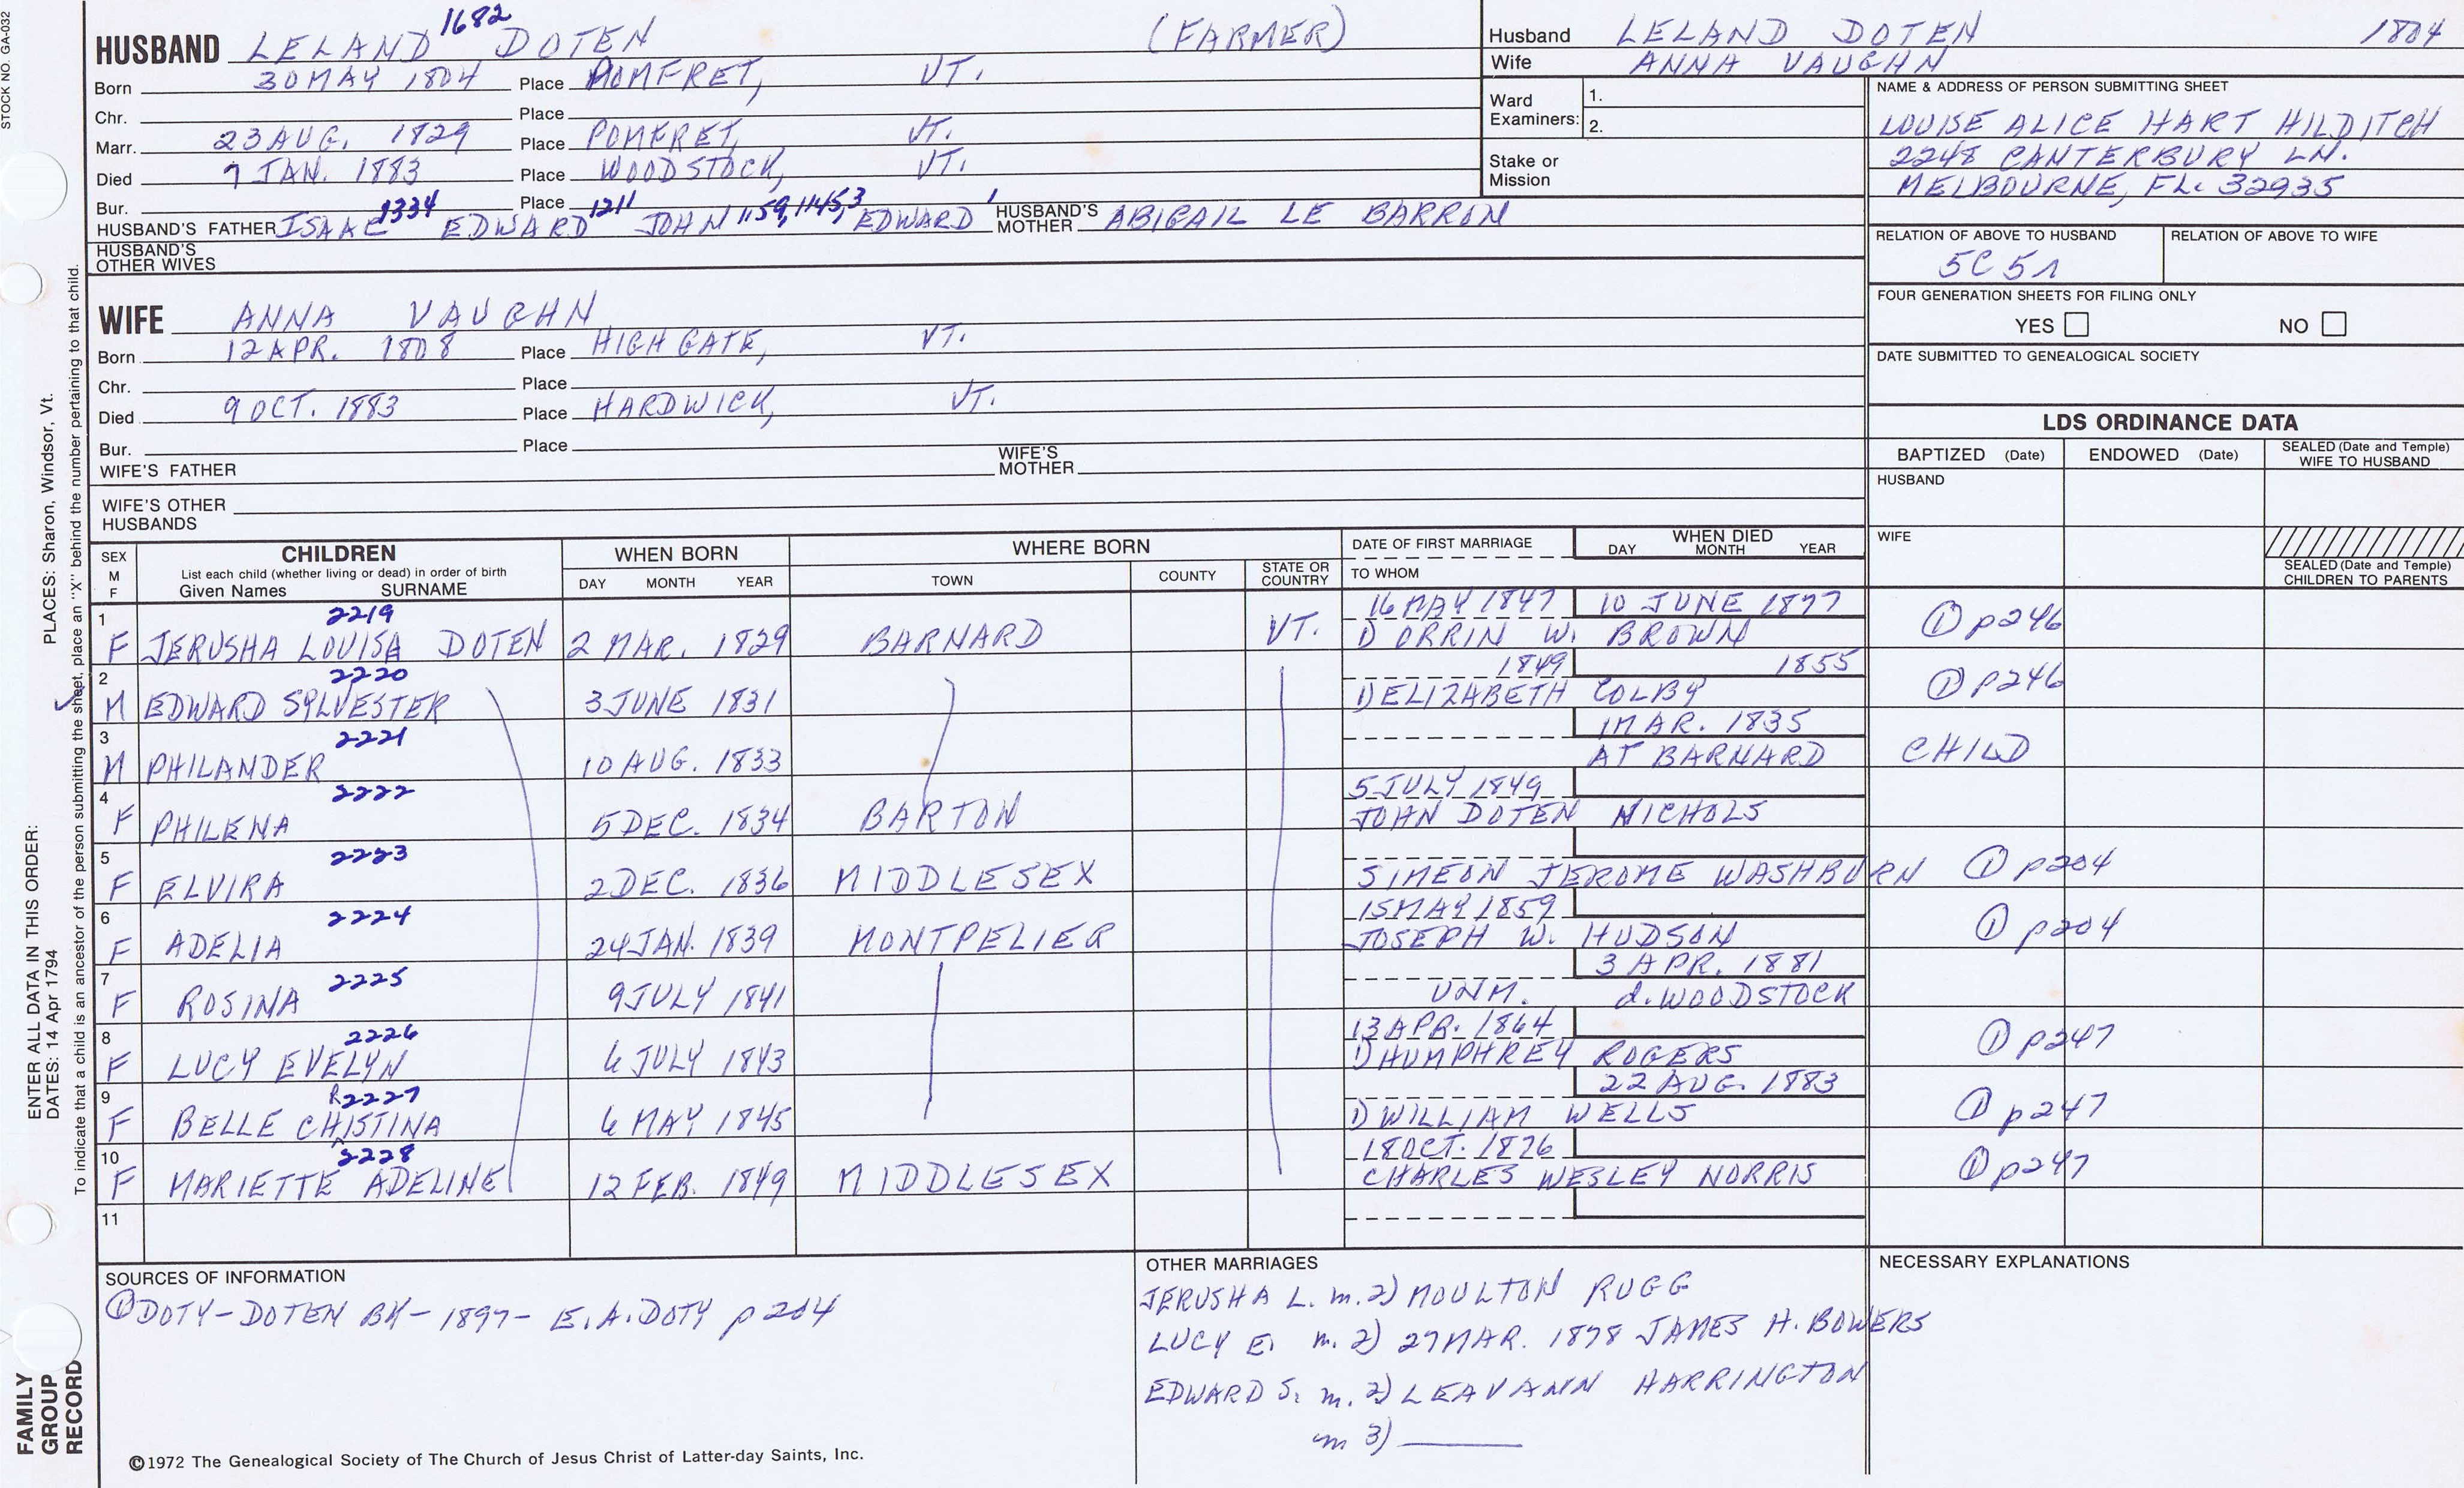 STOCK NO. GA-032
1682
HUSBAND LELAND DOTEN (FARMER)
Born 30 MAY 1804 Place POMFRET, VT.
Chr. Place
Marr. 23 AUG. 1829 Place POMFRET, VT.
Died 7 JAN. 1883 Place WOODSTOCK, VT.
Bur. Place
1334 1211 1159, 11453,
HUSBAND'S FATHER ISAAC EDWARD JOHN EDWARD HUSBAND'S MOTHER ABIGAIL LE BARRON
HUSBAND'S OTHER WIVES
WIFE ANNA VAUGHN
Born 12 APR. 1808 Place HIGHGATE, VT.
Chr. Place
Died 9 OCT. 1883 Place HARDWICK, VT.
Bur. Place
WIFE'S FATHER WIFE'S MOTHER
WIFE'S OTHER HUSBANDS
Husband LELAND DOTEN 1804
Wife ANNA VAUGHN
Ward Examiners: 1.
2.
Stake or Mission
NAME & ADDRESS OF PERSON SUBMITTING SHEET
LOUISE ALICE HART HILDITCH
2248 CANTERBURY LN.
MELBOURNE, FL. 32935
RELATION OF ABOVE TO HUSBAND RELATION OF ABOVE TO WIFE
5C 5r
FOUR GENERATION SHEETS FOR FILING ONLY
YES NO
DATE SUBMITTED TO GENEALOGICAL SOCIETY
LDS ORDINANCE DATA
BAPTIZED (Date) ENDOWED (Date) SEALED (Date and Temple) WIFE TO HUSBAND
HUSBAND
WIFE
SEALED (Date and Temple) CHILDREN TO PARENTS
SEX M F CHILDREN WHEN BORN WHERE BORN DATE OF FIRST MARRIAGE WHEN DIED
List each child (whether living or dead) in order of birth
Given Names SURNAME DAY MONTH YEAR TOWN COUNTY STATE OR COUNTRY TO WHOM DAY MONTH YEAR
1 2219 16 MAY 1847 10 JUNE 1877
F JERUSHA LOUISA DOTEN 2 MAR. 1829 BARNARD VT. 1) ORRIN W. BROWN ① p246
2 2220 1849 1855
M EDWARD SYLVESTER 3 JUNE 1831 1) ELIZABETH COLBY ① p246
3 2221 1 MAR. 1835
M PHILANDER 10 AUG. 1833 AT BARNARD CHILD
4 2222 5 JULY 1849
F PHILENA 5 DEC. 1834 BARTON JOHN DOTEN NICHOLS
5 2223
F ELVIRA 2 DEC. 1836 MIDDLESEX SIMEON JEROME WASHBURN ① p204
6 2224 15 MAY 1859
F ADELIA 24 JAN. 1839 MONTPELIER JOSEPH W. HUDSON ① p204
7 2225 3 APR. 1881
F ROSINA 9 JULY 1841 UNM. d. WOODSTOCK
8 2226 13 APR. 1864
F LUCY EVELYN 6 JULY 1843 1) HUMPHREY ROGERS ① p247
9 R 2227 22 AUG. 1883
F BELLE CHISTINA 6 MAY 1845 1) WILLIAM WELLS ① p247
10 2228 18 OCT. 1876
F MARIETTE ADELINE 12 FEB. 1849 MIDDLESEX CHARLES WESLEY NORRIS ① p247
11
SOURCES OF INFORMATION
① DOTY-DOTEN BK-1897- E.A. DOTY p 204
OTHER MARRIAGES
JERUSHA L. m. 2) MOULTON RUGG
LUCY E. m. 2) 27 MAR. 1878 JAMES H. BOWERS
EDWARD S. m. 2) LEAVANN HARRINGTON
m 3)
NECESSARY EXPLANATIONS
©1972 The Genealogical Society of The Church of Jesus Christ of Latter-day Saints, Inc.
ENTER ALL DATA IN THIS ORDER:
PLACES: Sharon, Windsor, Vt.
DATES: 14 Apr 1794
To indicate that a child is an ancestor of the person submitting the sheet, place an "X" behind the number pertaining to that child.
FAMILY GROUP RECORD